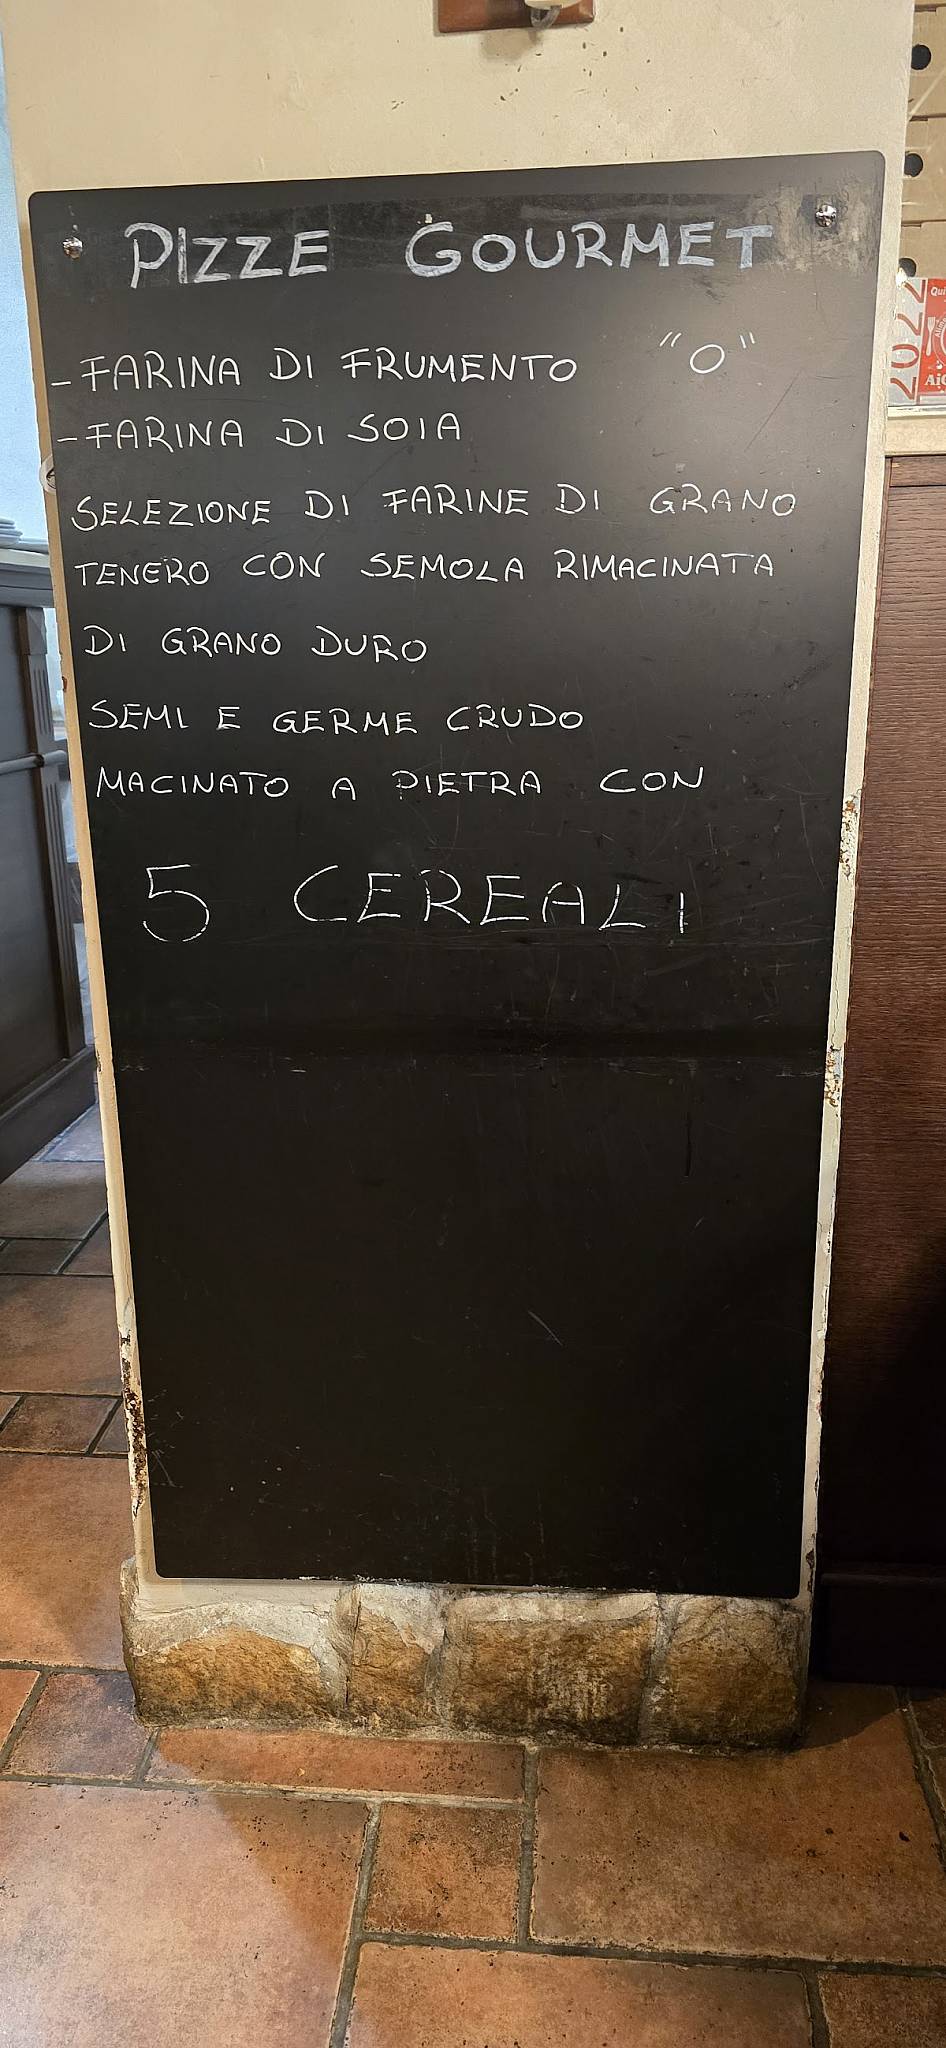 PIZZE GOURMET
- FARINA DI FRUMENTO "0"
- FARINA DI SOIA
SELEZIONE DI FARINE DI GRANO
TENERO CON SEMOLA RIMACINATA
DI GRANO DURO
SEMI E GERME CRUDO
MACINATO A PIETRA CON
5 CEREALI
2022